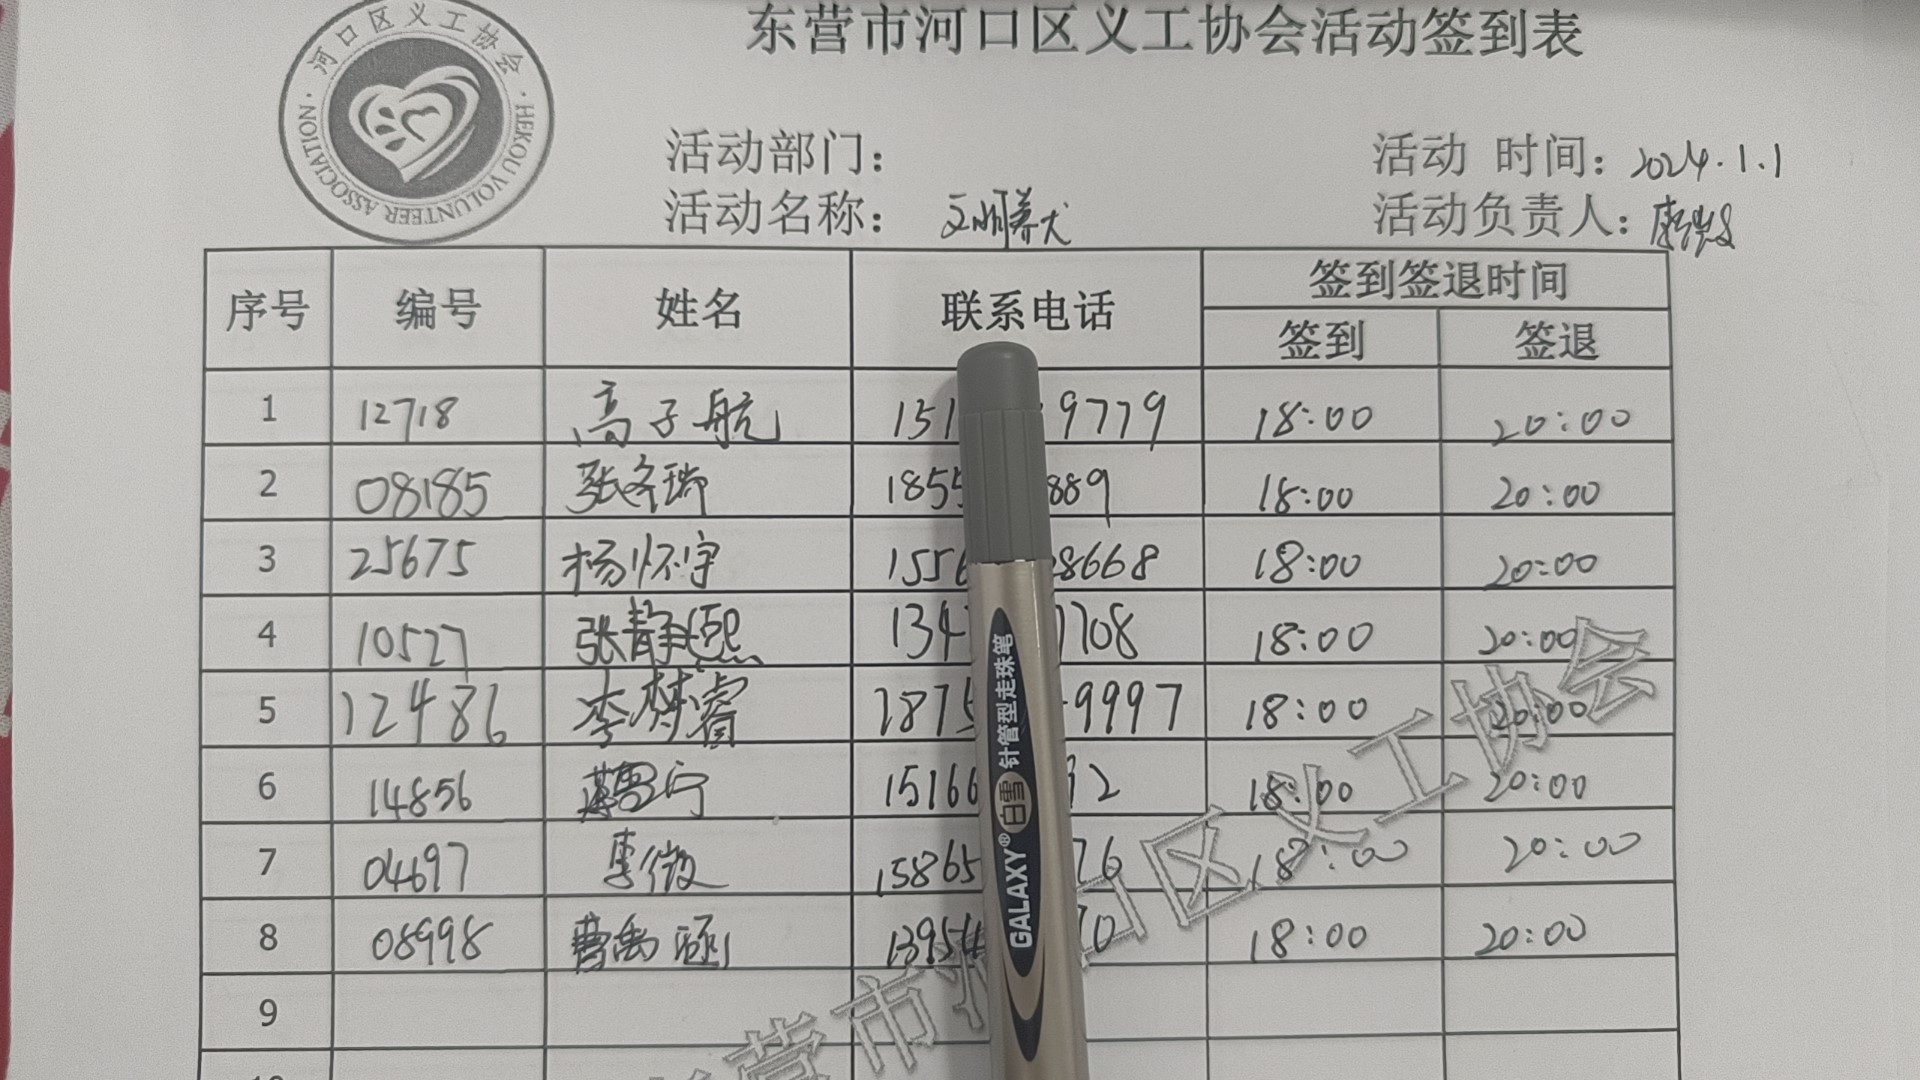 河口区义工协会
HEKOU VOLUNTEER ASSOCIATION
东营市河口区义工协会活动签到表
活动部门：
活动时间：2024.1.1
活动名称：文明养犬
活动负责人：
序号 编号 姓名 联系电话 签到签退时间
签到 签退
1 12718 高子航 151 9779 18:00 20:00
2 08185 张冬瑞 1855 889 18:00 20:00
3 25675 杨怀宇 1556 8668 18:00 20:00
4 10527 张静熙 134 1708 18:00 20:00
5 12486 李梦睿 1875 9997 18:00 20:00
6 14856 宁 15166 2 18:00 20:00
7 04697 李微 15865 76 18:00 20:00
8 08998 曹禹 1395 0 18:00 20:00
9
10
GALAXY® 白雪 针管型走珠笔
东营市河口区义工协会